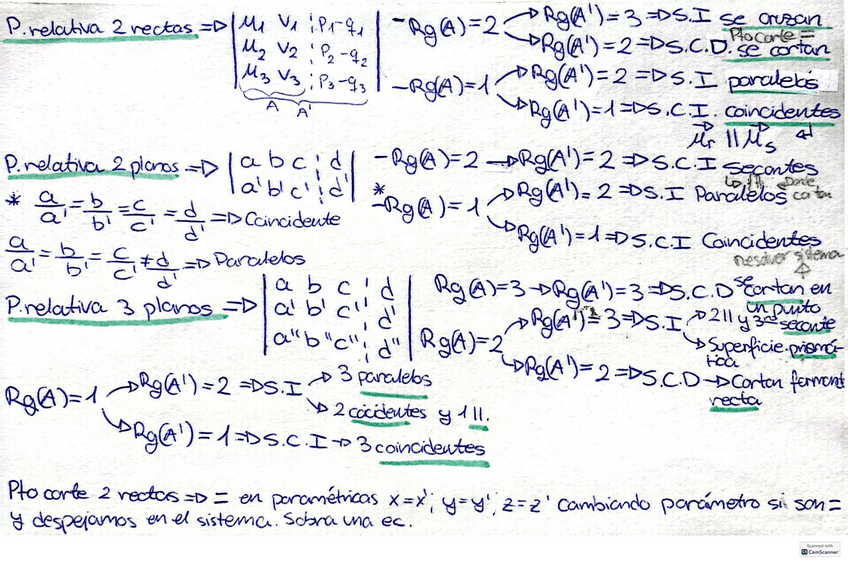 P. relativa 2 rectas => | μ1 v1 ¦ p1-q1 | - Rg(A) = 2 → Rg(A') = 3 => S.I se cruzan
| μ2 v2 ¦ p2-q2 | → Rg(A') = 2 => S.C.D. se cortan Pto corte =
| μ3 v3 ¦ p3-q3 | - Rg(A) = 1 → Rg(A') = 2 => S.I paralelos
A A' → Rg(A') = 1 => S.C.I. coincidentes
μr || μs
P. relativa 2 planos => | a b c ¦ d | - Rg(A) = 2 → Rg(A') = 2 => S.C.I secantes
| a' b' c' ¦ d' | * - Rg(A) = 1 → Rg(A') = 2 => S.I Paralelos
* a/a' = b/b' = c/c' = d/d' => Coincidente
→ Rg(A') = 1 => S.C.I Coincidentes
a/a' = b/b' = c/c' ≠ d/d' => Paralelos
Resolver sistema
P. relativa 3 planos => | a b c ¦ d | Rg(A) = 3 → Rg(A') = 3 => S.C.D se cortan en un punto
| a' b' c' ¦ d' | Rg(A) = 2 → Rg(A') = 3 => S.I → 2 || y 3º secante
| a'' b'' c'' ¦ d'' | → Superficie prismática
→ Rg(A') = 2 => S.C.D → Cortan formand recta
Rg(A) = 1 → Rg(A') = 2 => S.I → 3 paralelos
→ 2 cocidentes y 1 ||.
→ Rg(A') = 1 => S.C.I → 3 coincidentes
Pto corte 2 rectas => = en paramétricas x=x'; y=y'; z=z' cambiando parámetro si son =
y despejamos en el sistema. Sobra una ec.
Scanned with
CamScanner